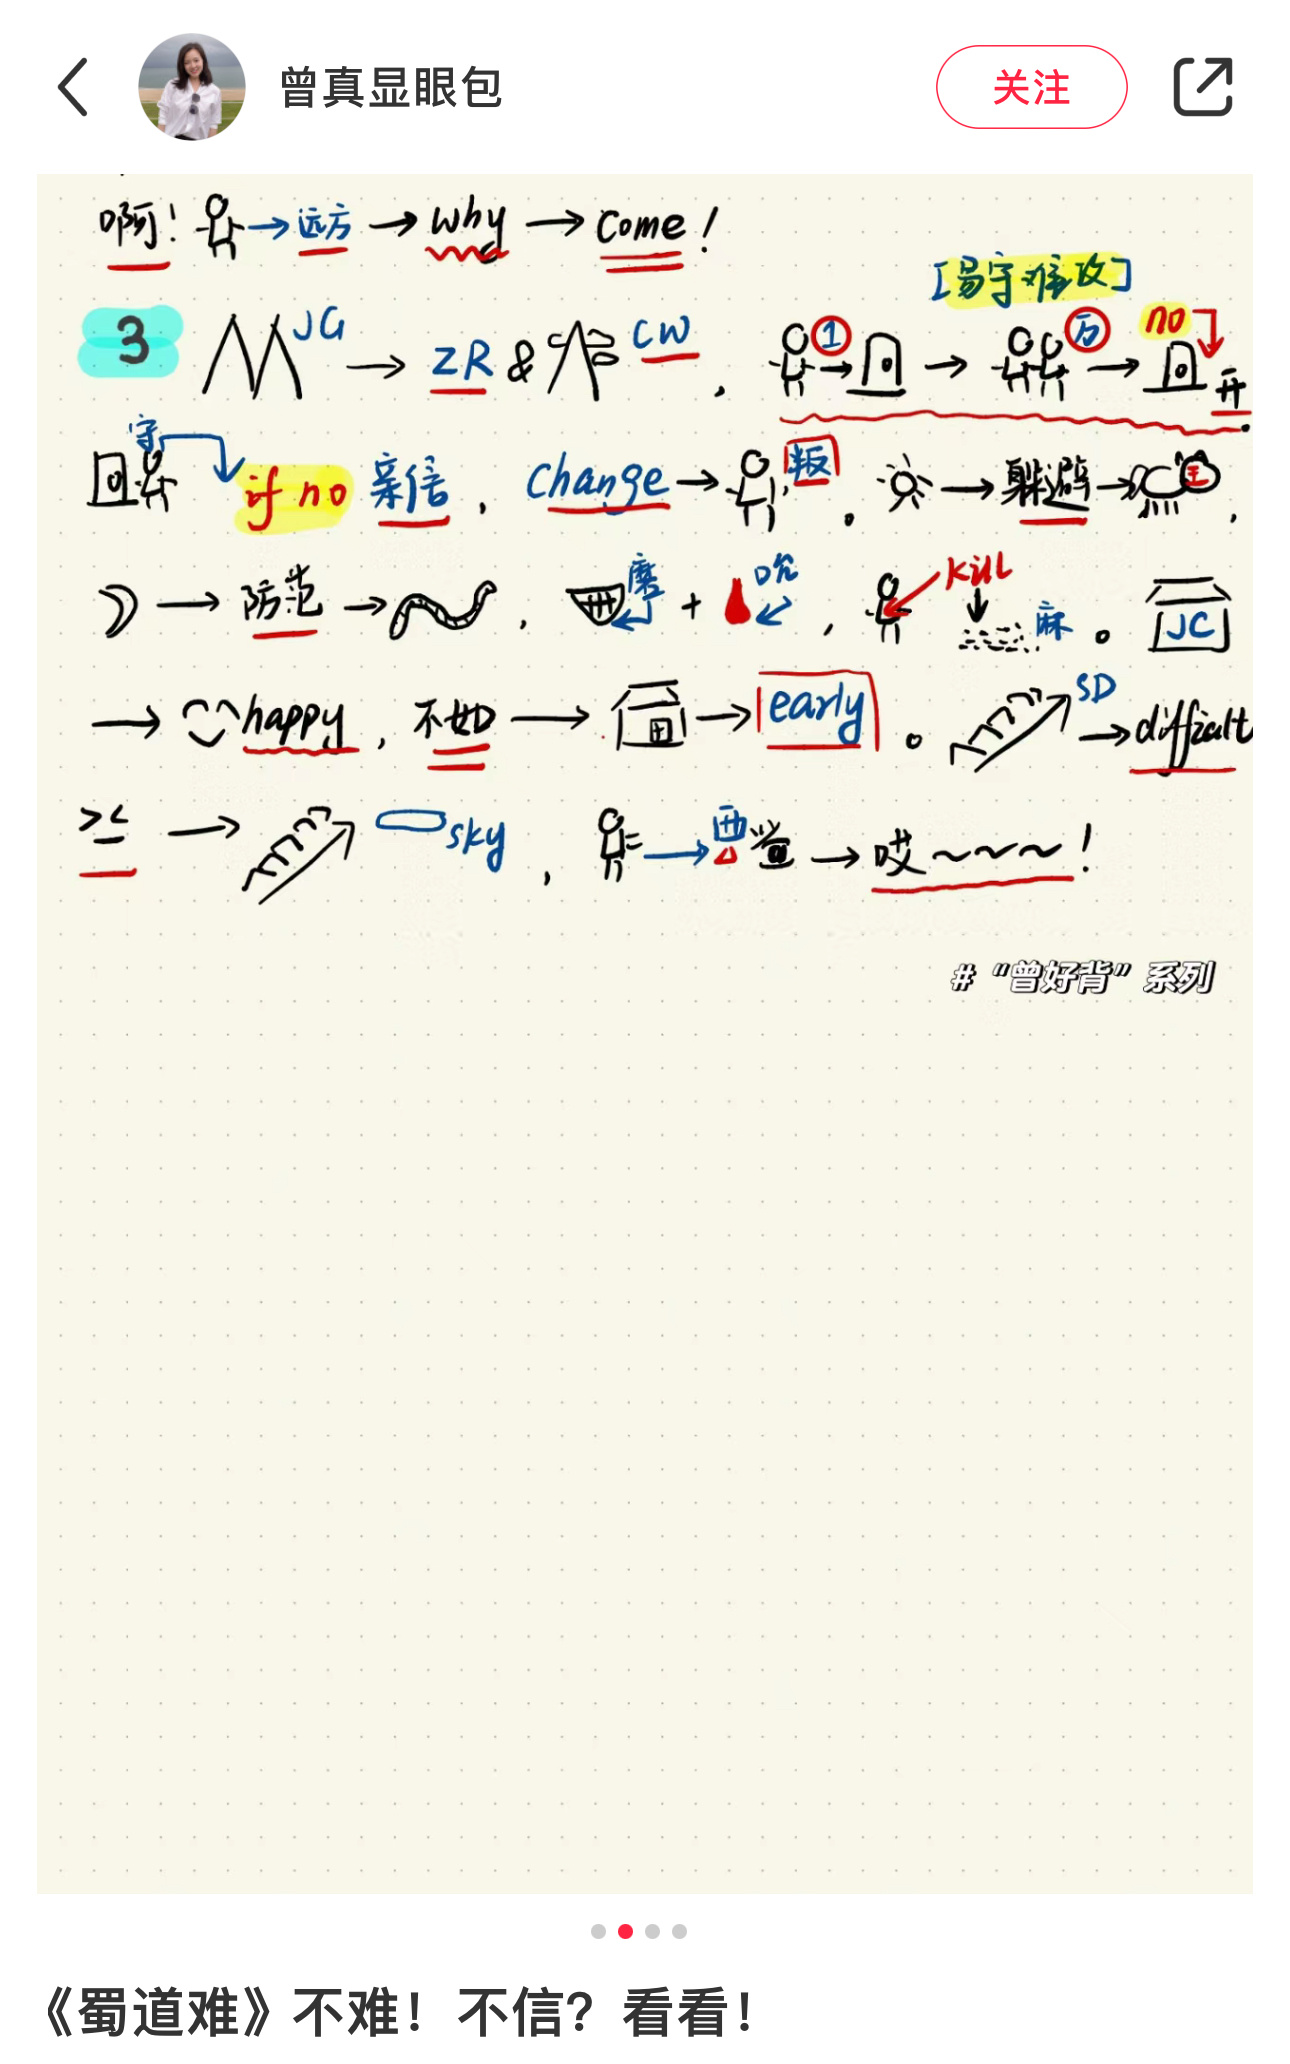 曾真显眼包 关注
啊！ 远方 why come！
[易守难攻]
3 JG ZR & CW ， 1 万 no 开 。
守 if no 亲信 ， change 叛 。 躲避 王 ，
防范 ， 磨 + 吮 ， kill 麻 。 JC
happy ， 不如 early 。 SD difficult
sky ， 西 哎～～～！
#“曾好背”系列
《蜀道难》不难！不信？看看！